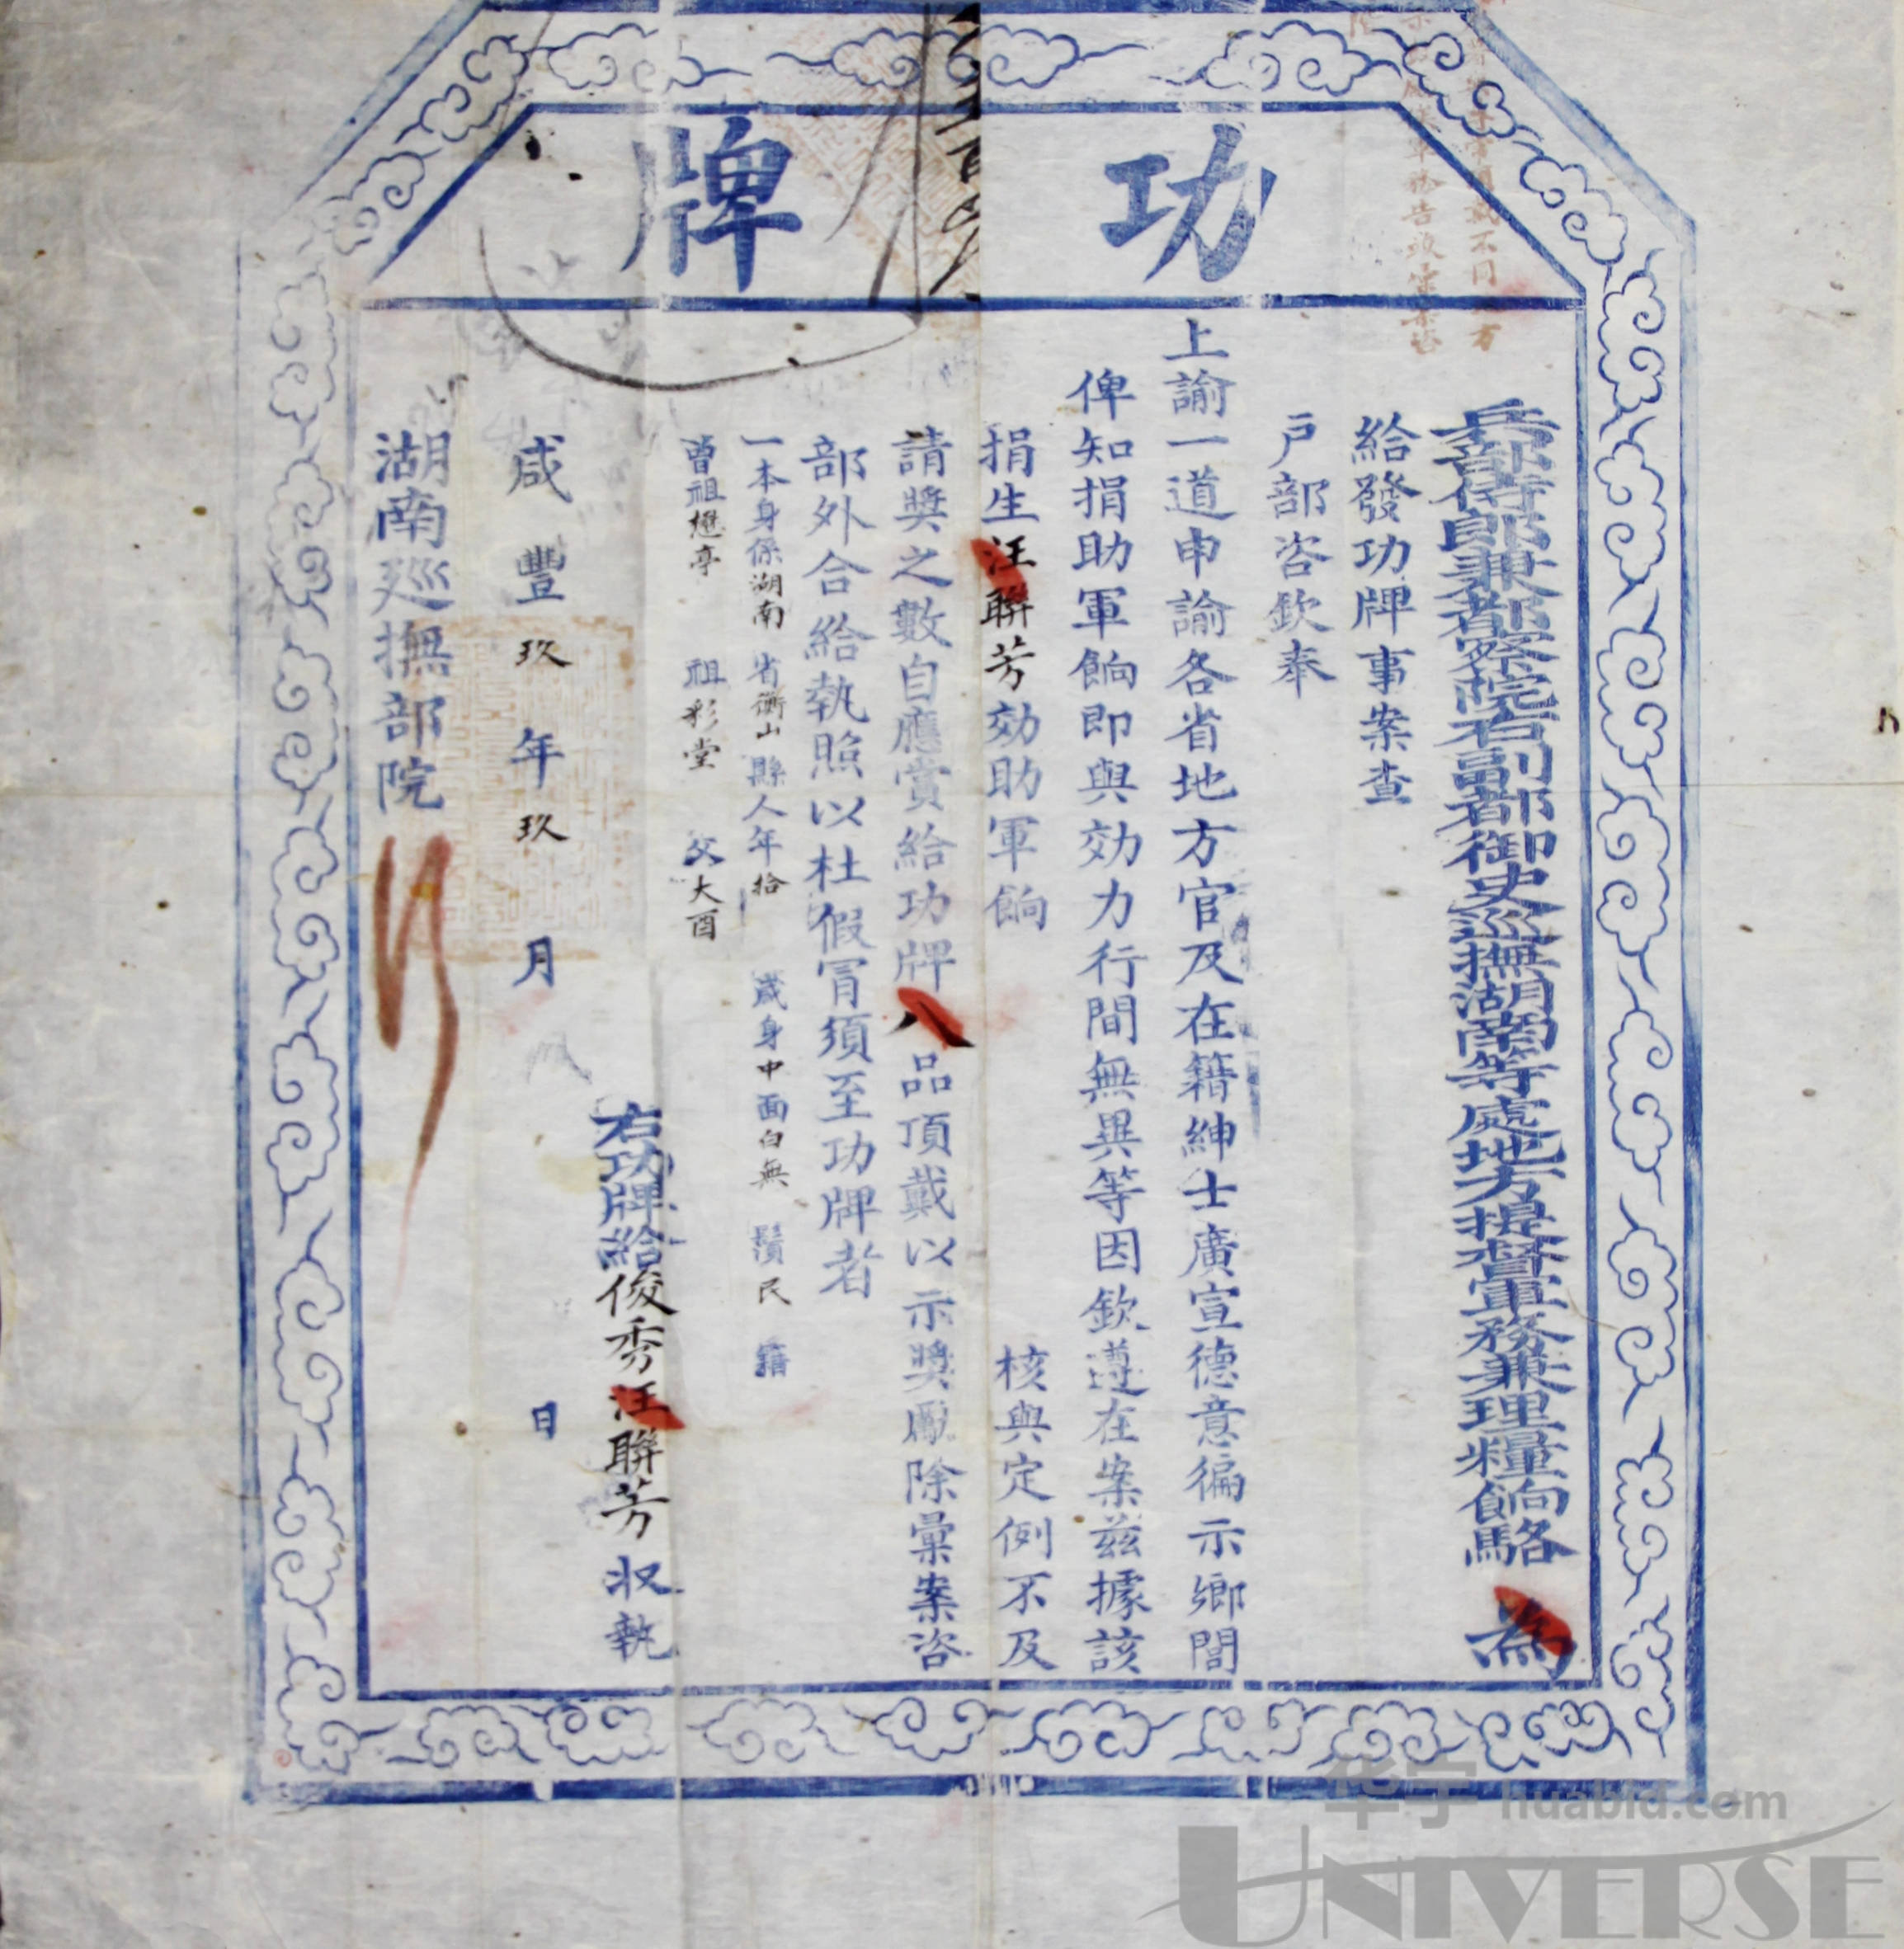 功牌
兵部侍郎兼都察院右副都御史巡撫湖南等處地方提督軍務兼理糧餉駱 為
給發功牌事案查
戶部咨欽奉
上諭一道申諭各省地方官及在籍紳士廣宣德意徧示鄉閭
俾知捐助軍餉即與効力行間無異等因欽遵在案茲據該
捐生汪聯芳効助軍餉 核與定例不及
請獎之數自應賞給功牌八品頂戴以示獎勵除彙案咨
部外合給執照以杜假冒須至功牌者
一本身係湖南省衡山縣人年拾 歲身中面白無鬚民籍
曾祖懋亭 祖彩堂 父大酉
右功牌給俊秀汪聯芳收執
咸豐玖年玖月 日
湖南巡撫部院
华宇 huabid.com
UNIVERSE